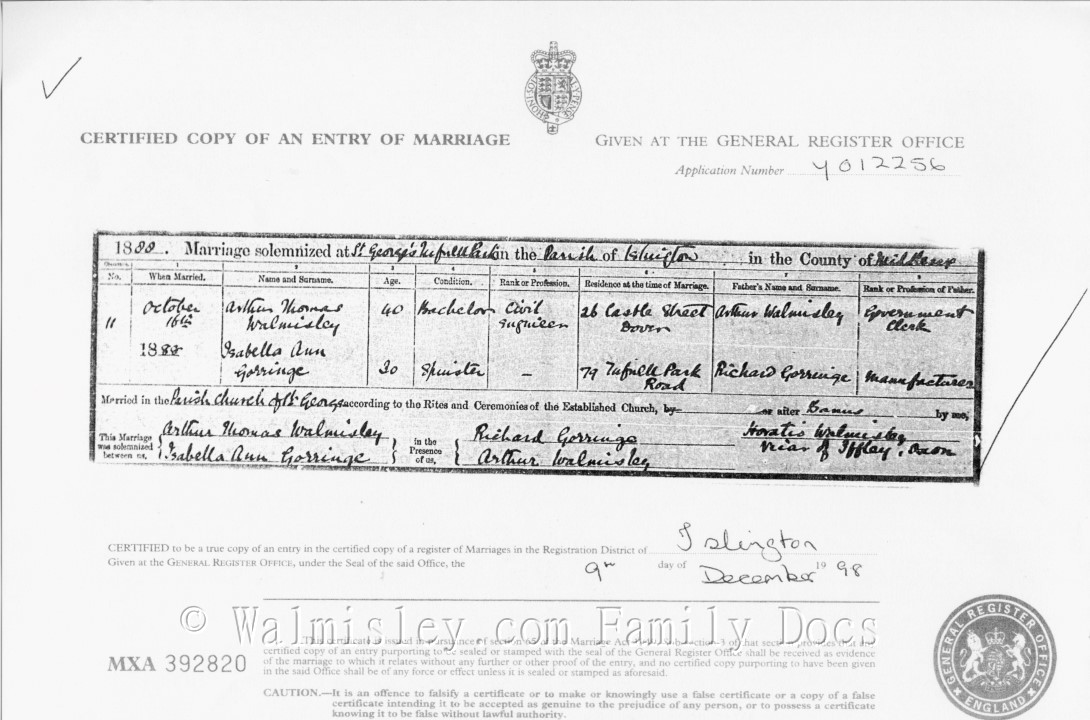 HONI·SOI ALY·PENSE
CERTIFIED COPY OF AN ENTRY OF MARRIAGE
GIVEN AT THE GENERAL REGISTER OFFICE
Application Number Y012256
1888. Marriage solemnized at St George's Tufnell Park in the Parish of Islington in the County of Middlesex
No. When Married. Name and Surname. Age. Condition. Rank or Profession. Residence at the time of Marriage. Father's Name and Surname. Rank or Profession of Father.
11 October 16th 1888
Arthur Thomas Walmisley 40 Bachelor Civil Engineer 26 Castle Street Dover Arthur Walmisley Government Clerk
Isabella Ann Gorringe 30 Spinster – 79 Tufnell Park Road Richard Gorringe Manufacturer
Married in the Parish Church of St George according to the Rites and Ceremonies of the Established Church, by or after Banns by me,
This Marriage was solemnized between us, Arthur Thomas Walmisley Isabella Ann Gorringe in the Presence of us, Richard Gorringe Arthur Walmisley Horatio Walmisley Vicar of Iffley, Oxon
CERTIFIED to be a true copy of an entry in the certified copy of a register of Marriages in the Registration District of Islington
Given at the GENERAL REGISTER OFFICE, under the Seal of the said Office, the 9th day of December 1998
© Walmisley.com Family Docs
This certificate is issued in pursuance of section 65 of the Marriage Act 19 section 3 of that section provides that any
certified copy of an entry purporting to be sealed or stamped with the seal of the General Register Office shall be received as evidence
of the marriage to which it relates without any further or other proof of the entry, and no certified copy purporting to have been given
in the said Office shall be of any force or effect unless it is sealed or stamped as aforesaid.
MXA 392820
CAUTION.—It is an offence to falsify a certificate or to make or knowingly use a false certificate or a copy of a false
certificate intending it to be accepted as genuine to the prejudice of any person, or to possess a certificate
knowing it to be false without lawful authority.
GENERAL REGISTER OFFICE
ENGLAND